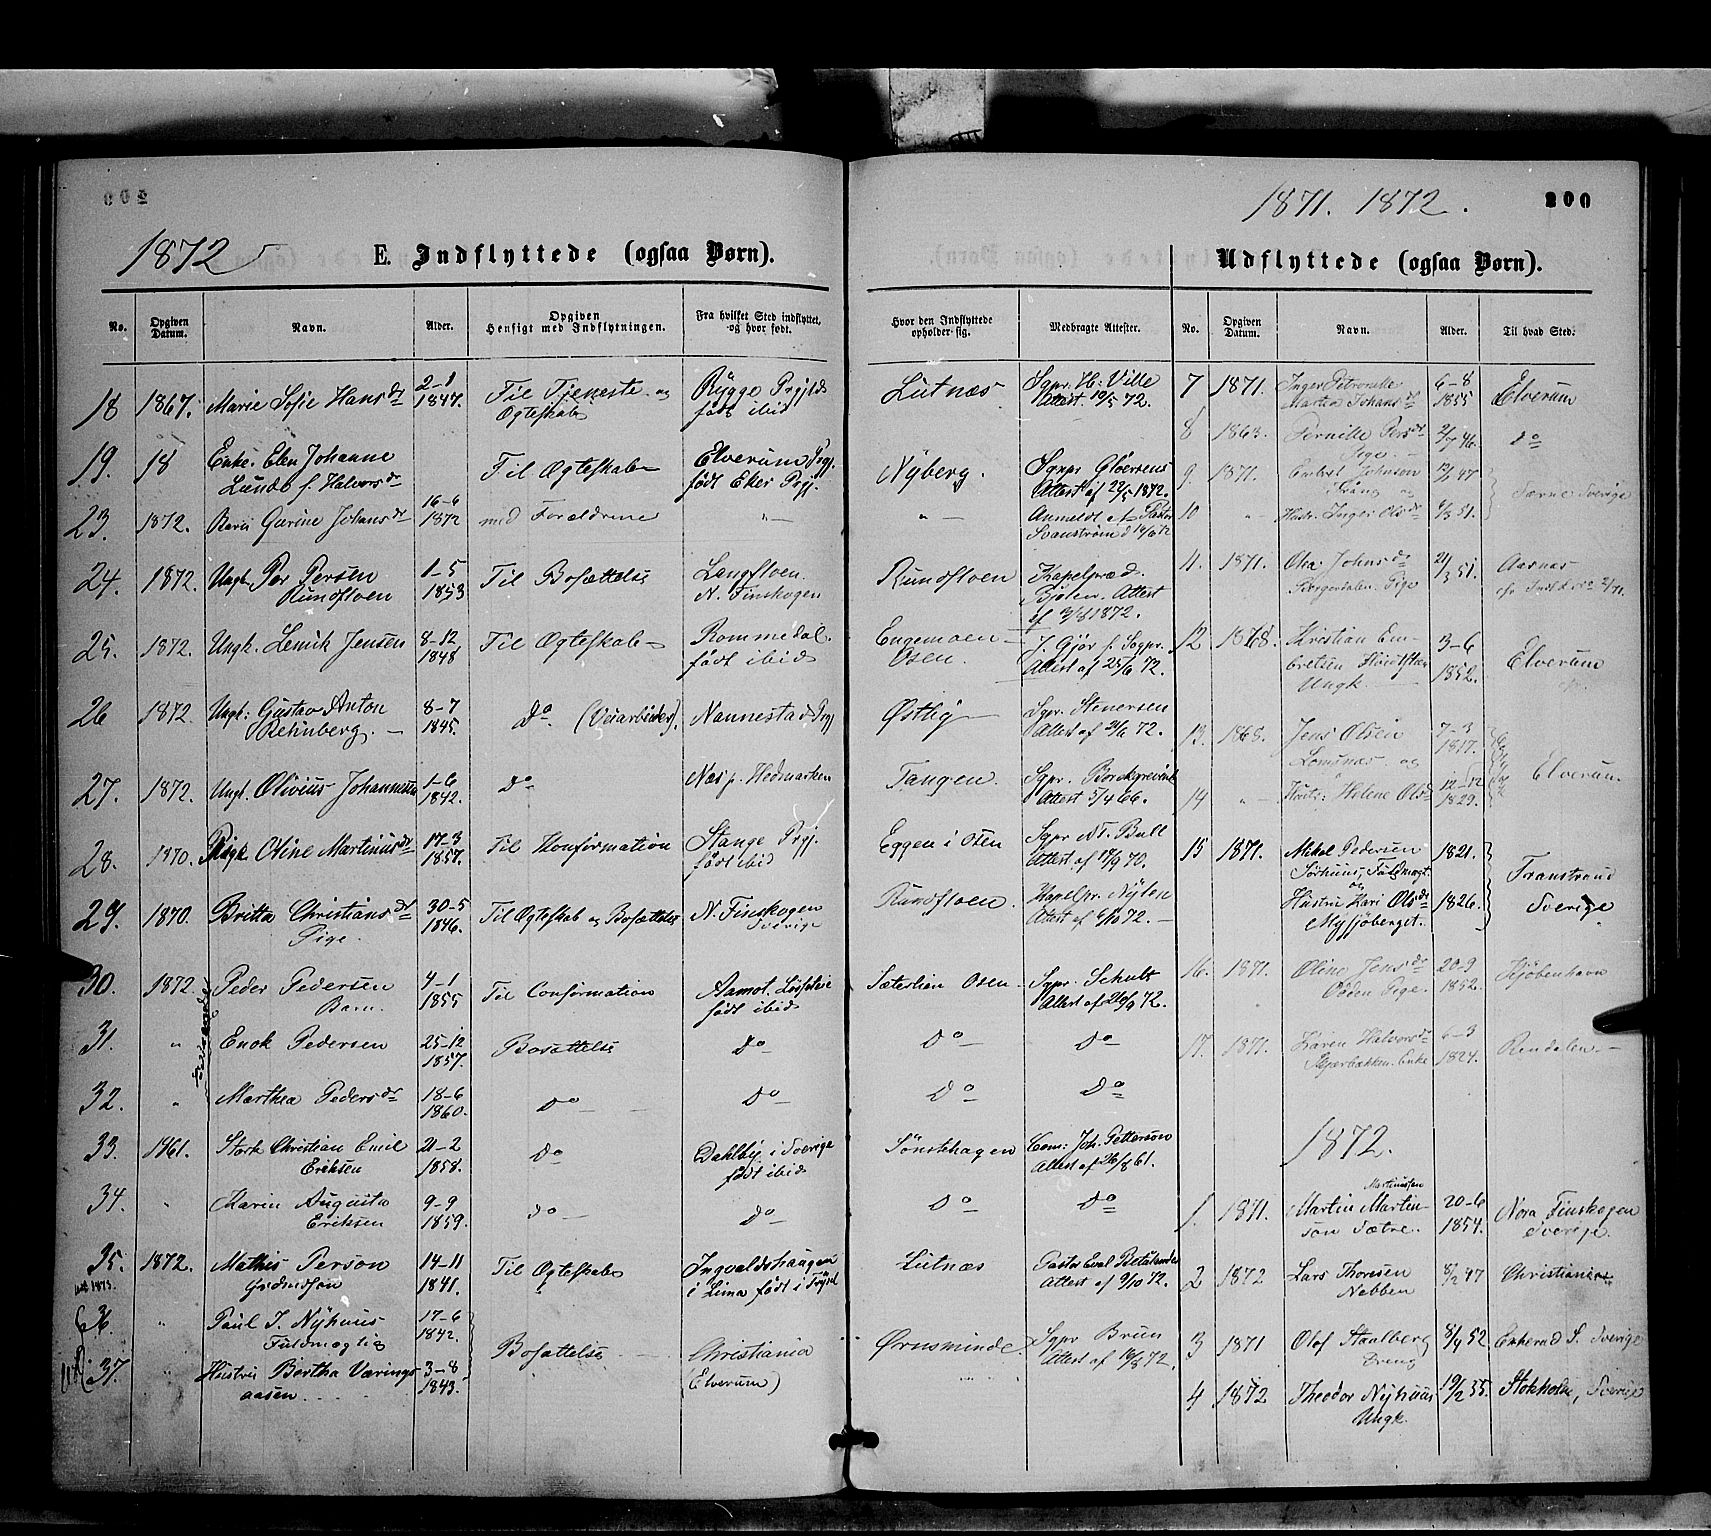 1871. 1872.
200
1872
E. Indflyttede (ogsaa Børn).
Udflyttede (ogsaa Børn).
No.
Opgiven Datum.
Navn.
Alder.
Opgiven Hensigt med Indflytningen.
Fra hvilket Sted indflyttet, og hvor født.
Hvor den Indflyttede opholder sig.
Medbragte Attester.
No.
Opgiven Datum.
Navn.
Alder.
Til hvad Sted.
18 1867. Marie Sofie Hansdr 2-1 1847. Til Tjeneste og Ægteskab Rygge Prgjld født ibid Lutnæs Sgpr. H. Wille Attest 19/5 72.
19. 18 Enke Elen Johanne Lunde f. Halvorsdr Til Ægteskab Elverum Prgj. født Eker Prgj. Nyberg. Attest af 22/5 1872.
23. 1872. Barn Gurine Johansdr 16-6 1872 med Forældrene " — " — Anmeldt af Pastor Svanstrøm d 14/6 72
24. 1872. Ungk. Per Persen Rundfloen 1-5 1853 Til Bosættelse Langfloen N. Finskogen Rundfloen Kapelpræd. Attest 1872.
25. 1872. Ungk. Lenik Jensen 8-12 1848 Til Ægteskab Rommedal født ibid Engemoen Osen. J. Gjør f. Sogpr. Attest af 25/6 72.
26 1872. Ungk. Gustav Anton Rehnberg. 8-7 1845. Do (Veiarbeider). Nannestad Prgj Østby Sgpr. Stenersen Attest af 72.
27. 1872. Ungk. Olivius Johannesen 1-6 1842. Do Næs p. Hedmarken Tangen. Sgpr. Borchgrevink Attest 5/4 66.
28. 1870. Pige Oline Martinusdr 17-3 1857. Til Konfirmation Stange Prgj. født ibid Eggen i Osen Sgpr N. T. Bull Attest af 17/9 70.
29. 1870. Britta Christiansdr Pige. 30-5 1846. Til Ægteskab og Bosættelse N. Finskogen Sverige Rundfloen. Kapelpr. Nylen Attest af 6/10 72.
30. 1872. Peder Pedersen Barn. 4-1 1855 Til Confirmation Aamot født ibid Sæterlien Osen Sgpr. Schult Attest af 20/9 72.
31. " Enok Pedersen 25-12 1857. Bosættelse Do Do Do
32. " Marthea Pedersdr 18-6 1860. Do Do Do Do
33. 1861. Christian Emil Eriksen 21-2 1858. Do Dahlby i Sverige født ibid Sønstehagen Com: Joh. Petterson Attest af 26/8 61.
34. " Karin Augusta Eriksen 9-9 1859. Do Do Do Do
35. 1872. Mathis Person Gudmdson 14-11 1841. Til Ægteskab Ingvaldshaagen i Lima født i Trysil Lutnæs Pastor Attest af 9/10 72.
36. " Paul J. Nyhuus Fuldmægtig 17-6 1842. Bosættelse Christiania Ørnsminde Sgpr Brun Attest af 16/8 72.
37. Hustru Bertha Væringsaasen 3-8 1843. (Elverum)
7 1871. Inger Petronille Martea Johansdr 6-8 1855 Elverum
8 1863. Pernille Persdr Pige 2/7 46. Do
9. 1871. Embret Johnsen Trång og 47 Særne Sverige
10 " Hustr. Inger Olsdr 6/3 51.
11. 1871. Oha Johnsdr Pige 21/3 51. Aarnæs
12. 1868. Kristian Embretsen Ungk. 3-6 1852. Elverum
13. 1868. Jens Olsen Lomsnæs og 7-3 1817. Elverum
14 " Hustr: Helene Olsdr 12-12 1829.
15 1871. Mikel Pedersen Sørhuus, Fuldmægt. og 1821. Transtrand Sverige
Hustru Kari Olsdr Mysjøberget. 1826.
16. 1871. Oline Jensdr Pige. 20-9 1852. Kjøbenhavn
17. 1871. Karen Halvorsdr Enke 1824. Rendalen
1872.
1. 1871. Martin Martinson Martinussen Sætre. 20-6 1854. Nora Finskogen Sverige.
2 1872 Lars Thoresen Nabben 8/2 47 Christiania
3 1871 Olof Staalberg Dreng 8/9 52 Sverige
4 1872 Theodor Nyhuus Ungk. 19/2 55. Stokholm, Sverige